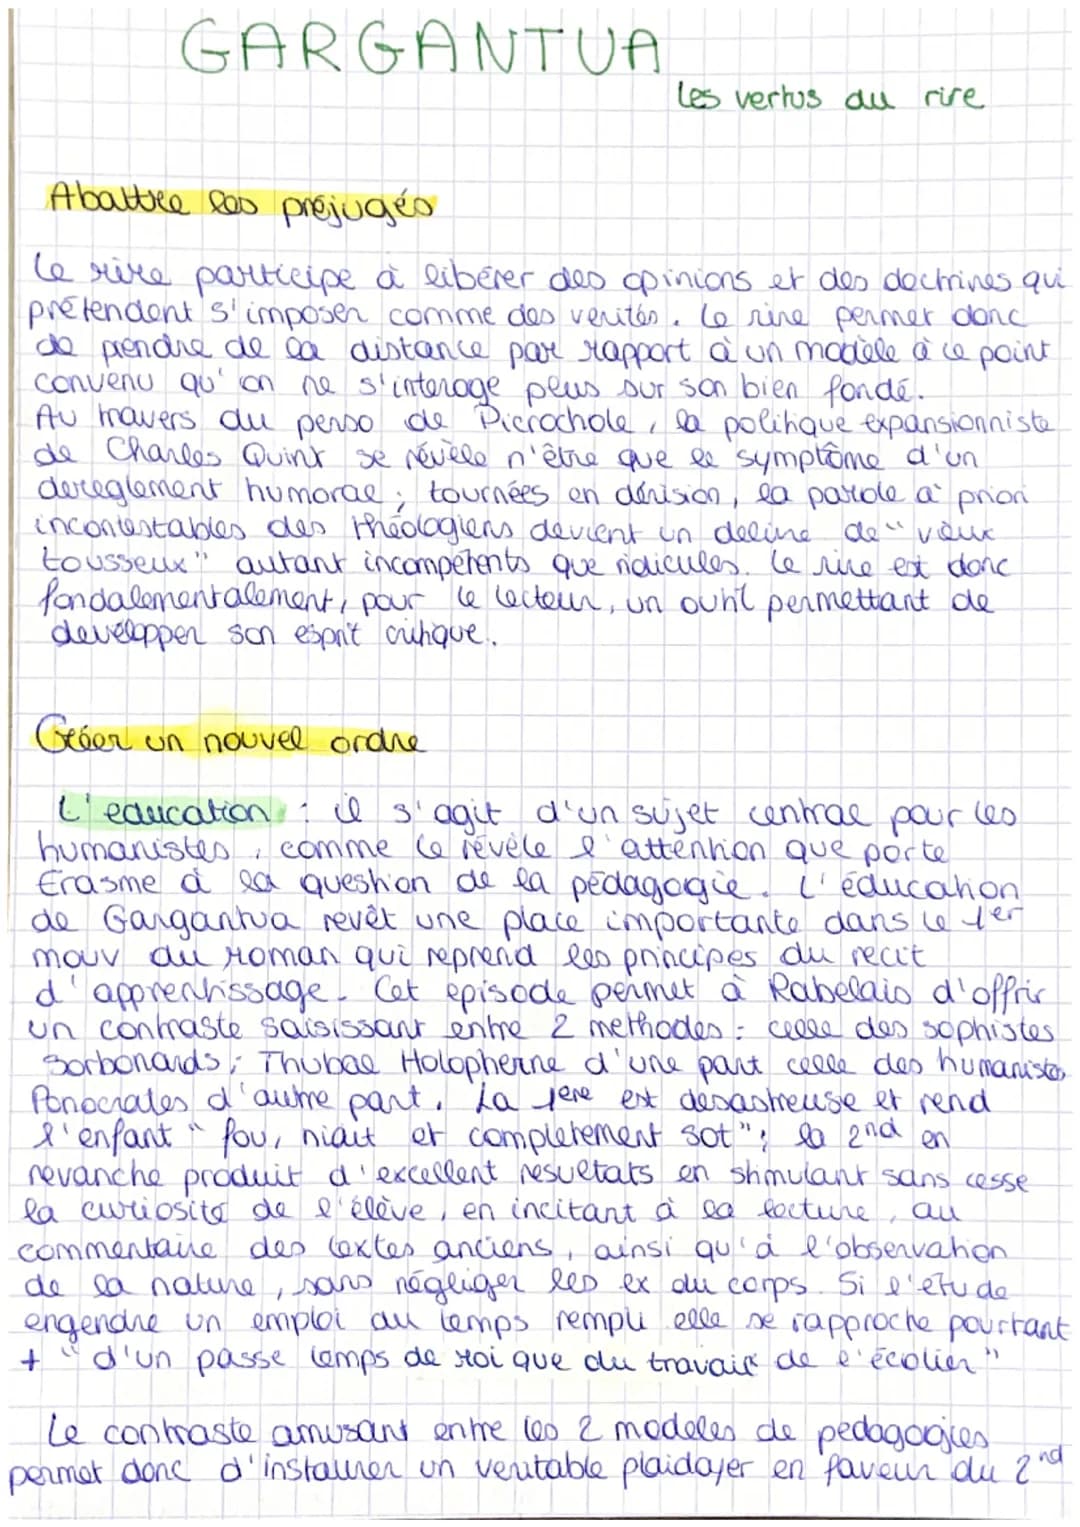 GARGANTUA
les vertus du rire
Abattre les préjugés
Le rire participe à libérer des opinions et des doctrines qui
prétendent s'imposer comme des vérités. Le rire permet donc
de prendre de la distance par rapport à un modèle à ce point
convenu qu'on ne s'interoge plus sur son bien fondé.
Au travers du perso de Picrochole, la politique expansionniste
de Charles Quint se révèle n'être que le symptôme d'un
dereglement humoral ; tournées en dérision, la parole a priori
incontestables des théologiens devient un deline de "vieux
tousseux" autant incompétents que ridicules. Le rire est donc
fondalementalement, pour le lecteur, un outil permettant de
développer son esprit critique.
Créer un nouvel ordre
L'education : il s'agit d'un sujet central pour les
humanistes, comme le révèle l'attention que porte
Erasme à la question de la pédagogie. L'éducation
de Gargantua revêt une place importante dans le 1er
mouv du roman qui reprend les principes du recit
d'apprentissage. Cet episode permet à Rabelais d'offrir
un contraste saisissant entre 2 methodes : celle des sophistes
sorbonards ; Thubal Holopherne d'une part celle des humanistes
Ponocrates d'autre part. La 1ere est desastreuse et rend
l'enfant "fou, niait et completement sot" ; la 2nd en
revanche produit d'excellent resultats en stimulant sans cesse
la curiosité de l'élève, en incitant à la lecture, au
commentaire des textes anciens, ainsi qu'à l'observation
de la nature, sans négliger les ex du corps. Si l'étude
engendre un emploi du temps rempli elle se rapproche pourtant
+ "d'un passe temps de roi que du travail de l'écolier"
Le contraste amusant entre les 2 modeles de pedagogies
permet donc d'instaurer un veritable plaidoyer en faveur du 2nd